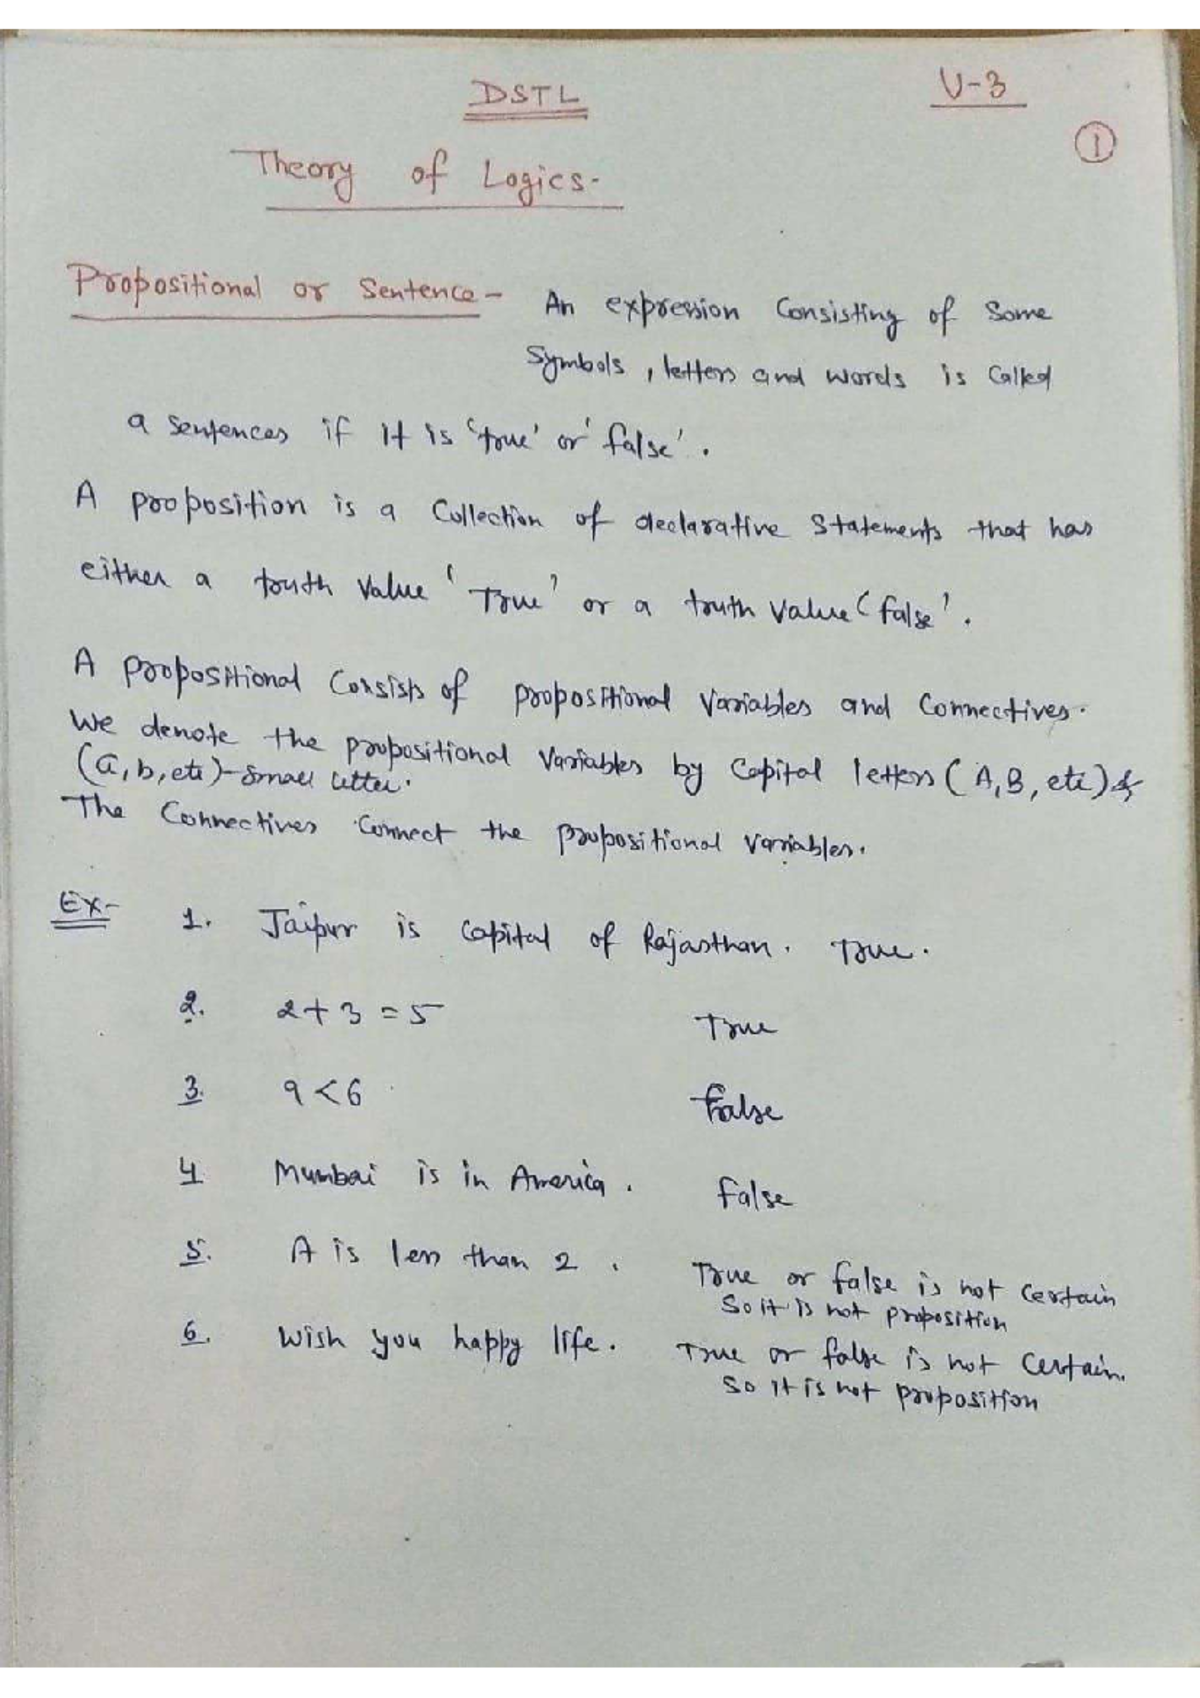 DSTL
U-3
1
Theory of Logics-
Propositional or Sentence- An expression Consisting of Some
Symbols, letters and words is Called
a sentences if it is 'true' or 'false'.
A proposition is a Collection of declarative Statements that has
either a truth Value 'True' or a truth Value 'false'.
A propositional Consists of propositional Variables and Connectives.
We denote the propositional Variables by Capital letters (A, B, etc) &
(a, b, etc)-small letter.
The Connectives Connect the propositional variables.
Ex- 1. Jaipur is Capital of Rajasthan. True.
2. 2+3=5 True
3. 9<6 False
4 Mumbai is in America. False
5. A is less than 2. True or false is not Certain
So it is not proposition
6. Wish you happy life. True or false is not Certain.
So it is not proposition